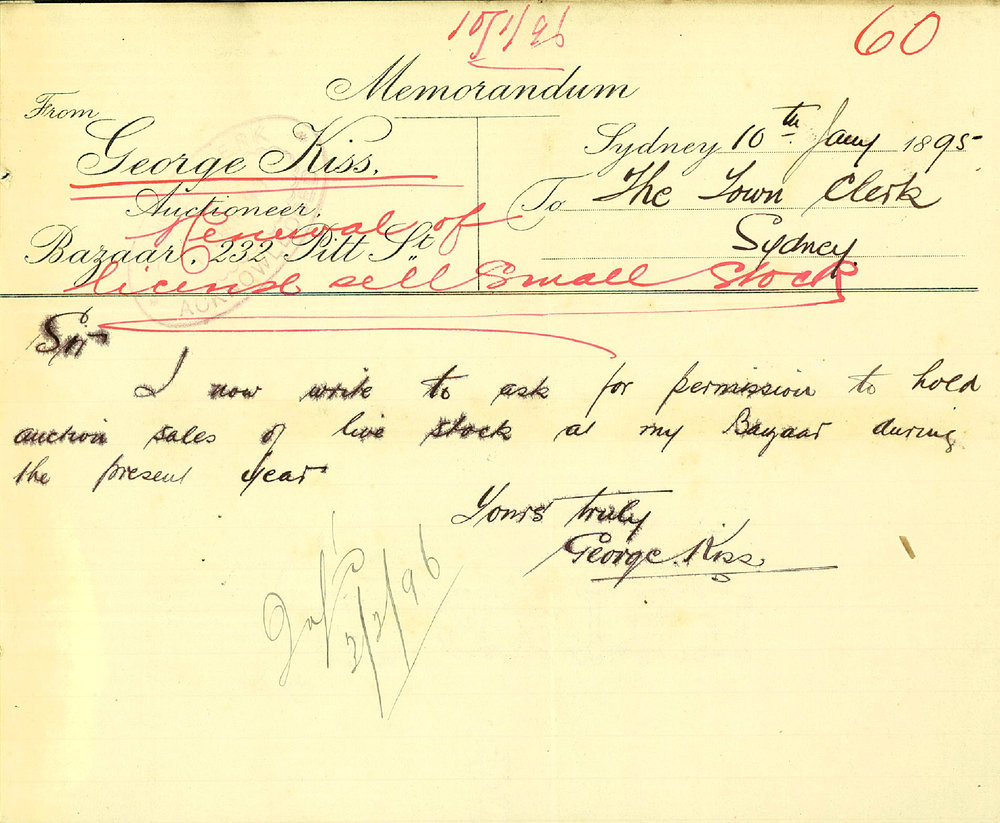 10/1/96
60
Memorandum
From
George Kiss.
Auctioneer.
Bazaar, 232 Pitt St.
Sydney 10th Jany 1895
To The Town Clerk
Sydney.
Renewal of
license sell Small Stock
Sir
I now write to ask for permission to hold
auction sales of live stock at my Bazaar during
the present year
Yours truly
George Kiss
3/2/96